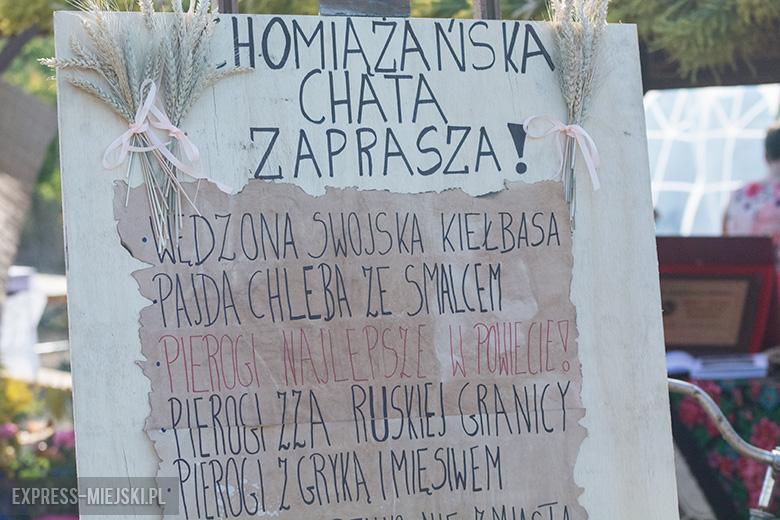 CHOMIĄŻAŃSKA
CHATA
ZAPRASZA!
• WĘDZONA SWOJSKA KIEŁBASA
• PAJDA CHLEBA ZE SMALCEM
• PIEROGI NAJLEPSZE W POWIECIE!
• PIEROGI ZZA RUSKIEJ GRANICY
• PIEROGI Z GRYKĄ I MIĘSIWEM
NIE Z MIASTA
EXPRESS-MIEJSKI.PL